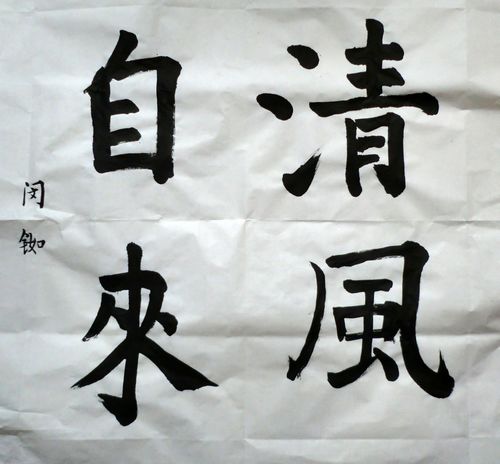 清風
自來
闵铷